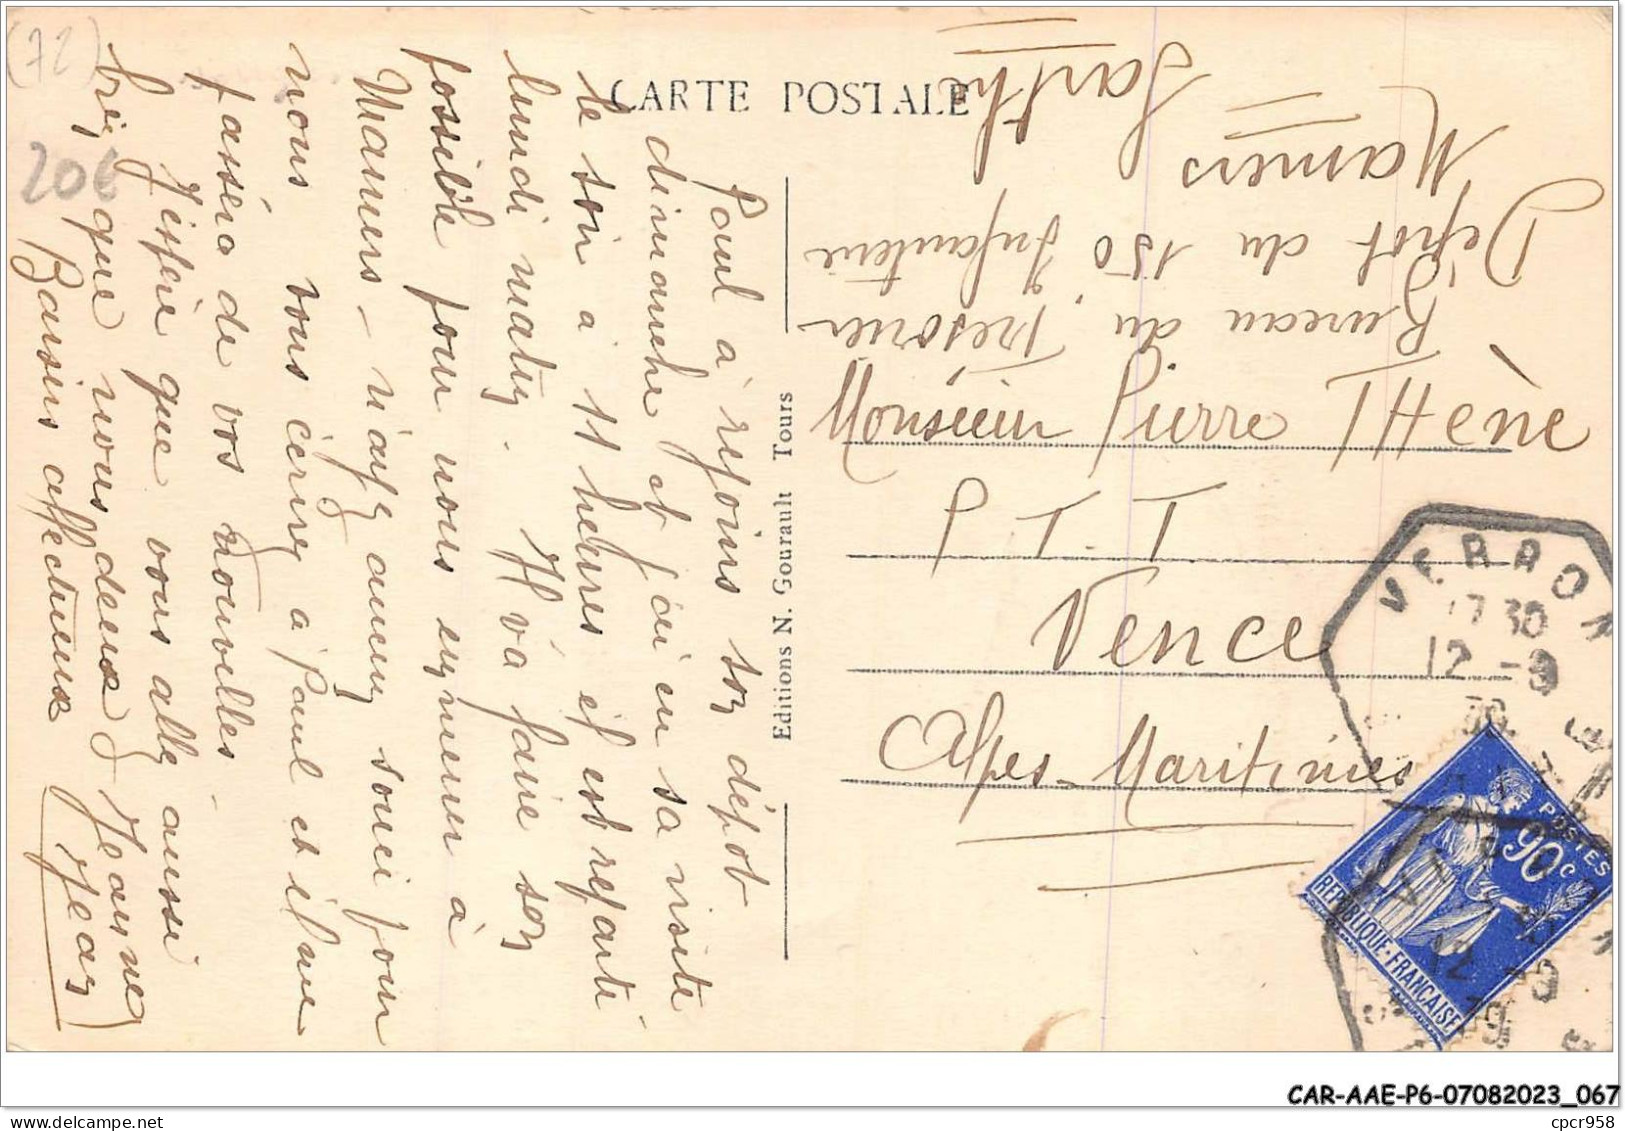 CARTE POSTALE
Paul a rejoins son dépot
dimanche et j'ai eu sa visite
le soir à 11 heures il est reparti
lundi matin. Il va faire son
possible pour nous emmener à
Mamers - n'ayez aucun souci pour
nous vous écrirez à Paul et il me
passera de vos nouvelles -
J'espère que vous allez aussi
bien que nous deux Jeanne
Baisers affectueux Jean
(72)
20€
Editions N. Gourault Tours
Dépot du 150 Infanterie
Bureau du Trésorier
Mamers
Sarthe
Monsieur Pierre THène
P.T.T
Vence
Alpes-Maritimes
VERRON
17 30
12 -9
39
POSTES
90c
REPUBLIQUE-FRANCAISE
12 -9
39
CAR-AAE-P6-07082023_067
cpcr958